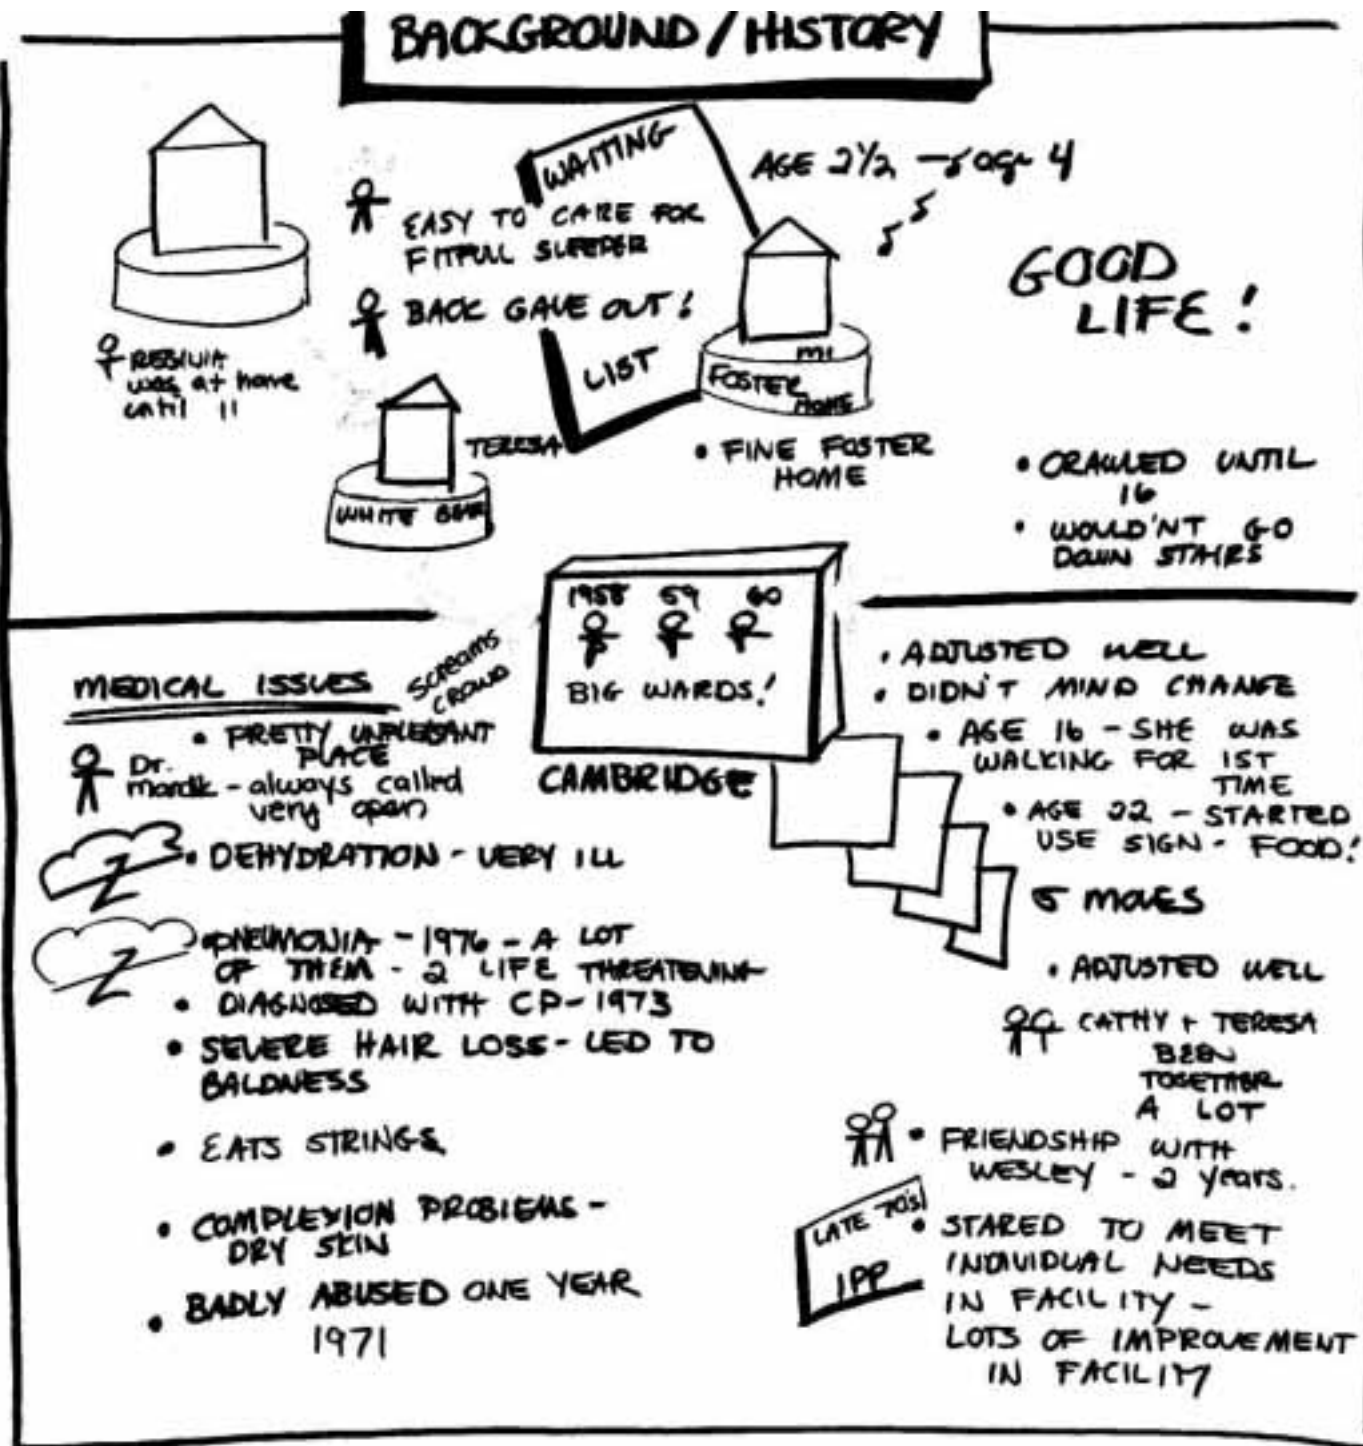 BACKGROUND / HISTORY
WAITING
LIST
AGE 2 1/2 → age 4
EASY TO CARE FOR
FITFUL SLEEPER
BACK GAVE OUT!
was at home
until 11
TERESA
WHITE BEAR
MI
FOSTER
HOME
• FINE FOSTER
HOME
GOOD
LIFE!
• CRAWLED UNTIL
16
• WOULD'NT GO
DOWN STAIRS
1958 59 60
BIG WARDS!
CAMBRIDGE
MEDICAL ISSUES
SCREAMS
CROWD
• PRETTY UNPLEASANT
PLACE
Dr.
- always called
very open
• DEHYDRATION - VERY ILL
• PNEUMONIA - 1976 - A LOT
OF THEM - 2 LIFE THREATENING
• DIAGNOSED WITH CP - 1973
• SEVERE HAIR LOSS - LED TO
BALDNESS
• EATS STRINGS
• COMPLEXION PROBLEMS -
DRY SKIN
• BADLY ABUSED ONE YEAR
1971
• ADJUSTED WELL
• DIDN'T MIND CHANGE
• AGE 16 - SHE WAS
WALKING FOR 1ST
TIME
• AGE 22 - STARTED
USE SIGN - FOOD!
5 MOVES
• ADJUSTED WELL
CATHY + TERESA
BEEN
TOGETHER
A LOT
• FRIENDSHIP WITH
WESLEY - 2 years.
LATE 70'S
IPP
• STARED TO MEET
INDIVIDUAL NEEDS
IN FACILITY -
LOTS OF IMPROVEMENT
IN FACILITY